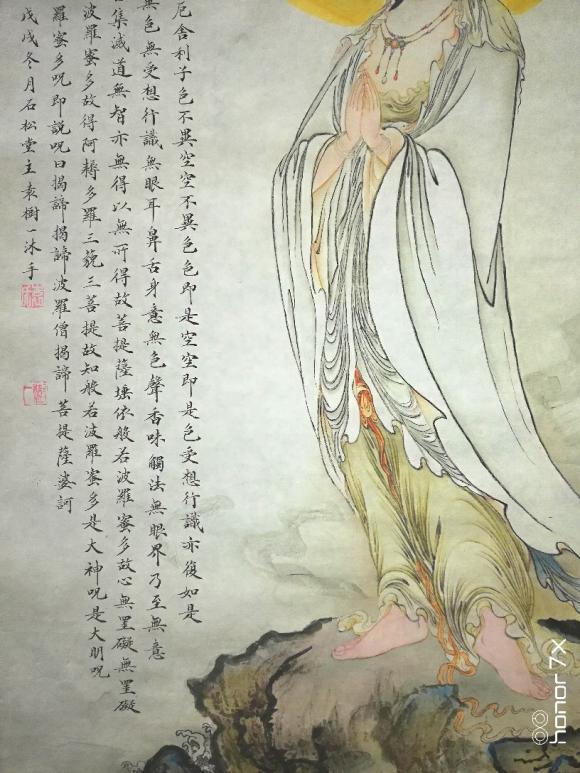 厄舍利子色不異空空不異色色即是空空即是色受想行識亦復如是
無色無受想行識無眼耳鼻舌身意無色聲香味觸法無眼界乃至無意
集滅道無智亦無得以無所得故菩提薩埵依般若波羅蜜多故心無罣礙無罣礙
波羅蜜多故得阿耨多羅三藐三菩提故知般若波羅蜜多是大神呪是大明呪
羅蜜多呪即說呪曰揭諦揭諦波羅僧揭諦菩提薩婆訶
戊戌冬月石松堂主袁樹一沐手
honor 7X